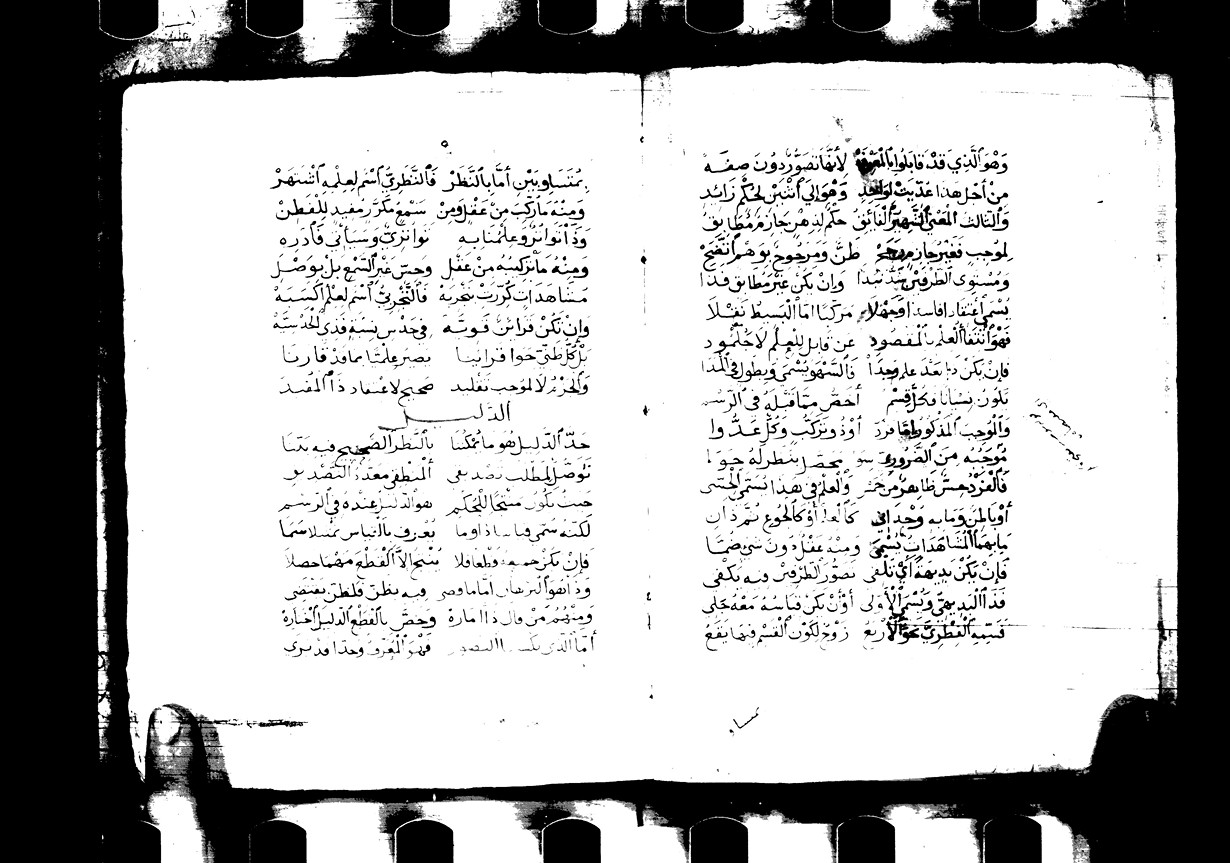 وَهْوَ الَّذِي قَدْ قَابَلُوا بِالْمَعْرِفَهْ لِأَنَّهَا تَصَوُّرٌ دُونَ صِفَهْ
مِنْ أَجْلِ هَذَا عُدِّيَتْ لِوَاحِدِ وَهْوَ إِلَى اثْنَيْنِ لِحُكْمٍ زَائِدِ
وَالثَّالِثُ الْمَعْنَى الشَّهِيرُ الْفَائِقُ حُكْمٌ لِذِهْنٍ جَازِمٌ مُطَابِقُ
لِمُوجِبٍ فَغَيْرُ جَازِمٍ رَجَحْ ظَنٌّ وَمَرْجُوحٌ بِوَهْمٍ اتَّضَحْ
وَمُسْتَوِي الطَّرْفَيْنِ وَإِنْ يَكُنْ غَيْرَ مُطَابِقٍ فَذَا
يُسْمَى اعْتِقَادًا فَاسِدًا وَجَهْلَا مُرَكَّبًا أَمَّا الْبَسِيطُ نَقْلَا
فَهْوَ انْتِفَا الْعِلْمِ بِالْمَقْصُودِ عَنْ قَابِلٍ لِلْعِلْمِ لَا جُلْمُودِ
فَإِنْ يَكُنْ ذَا بَعْدَ عِلْمٍ وُجِدَا فَالسَّهْوُ يُسْمَى وَيَطُولُ فِي الْمَدَا
نِسْيَانًا فَكُلُّ قِسْمِ أَخَصُّ مِمَّا قَبْلَهُ فِي الرَّسْمِ
وَالْمُوجِبُ الْمَذْكُورُ إِمَّا مُفْرَدُ أَوْ ذُو تَرَكُّبٍ وَكُلٌّ عَدَّدُوا
مُوجَبُهُ مِنَ الضَّرُورِيِّ يَحْصُلُ بِنَظَرٍ لَهُ
فَالْفَرْدُ حِسٌّ ظَاهِرٌ وَالْعِلْمُ فِي هَذَا يُسَمَّى الْحِسِّي
أَوْ بَاطِنٌ وَمَا بِهِ وِجْدَانِي أَوْ كَالْجُوعِ ثُمَّ ذَانِ
مَا بِهِمَا الْمُشَاهَدَاتِ يُسْمَى وَمِنْهُ عَقْلٌ دُونَ شَيْءٍ ضُمَّا
فَإِنْ يَكُنْ بَدِيهَةً أَيْ تُلْفَى تَصَوُّرُ الطَّرْفَيْنِ فِيهِ يُكْفَى
فَذَا الْبَدِيهِيُّ وَيُسْمَى الْأَوَّلِي أَوْ إِنْ يَكُنْ قِيَاسُهُ مَعْهُ جَلِي
فَسَمِّهِ الْفِطْرِيَّ نَحْوُ الْأَرْبَعُ زَوْجٌ لِكَوْنِ الْقَسْمِ فِيهَا يَقَعُ
بِمُتَسَاوِيَيْنِ أَمَّا بِالنَّظَرْ فَالنَّظَرِيُّ اسْمٌ لِعِلْمِهِ اشْتَهَرْ
وَمِنْهُ مَا رُكِّبَ مِنْ عَقْلٍ وَمِنْ سَمْعٍ مُكَرَّرٍ مُفِيدٍ لِلْفَطِنْ
وَذَا تَوَاتُرٌ وَعِلْمُنَا بِهِ تَوَاتُرِيٌّ وَسَيَأْتِي فَادْرِهِ
وَمِنْهُ مَا تَرْكِيبُهُ مِنْ عَقْلِ وَحِسٍّ غَيْرِ السَّمْعِ بَلْ بِوَصْلِ
مُشَاهَدَاتٍ كُرِّرَتْ بِتَجْرِبَهْ فَالتَّجْرِبِيُّ اسْمٌ لِعِلْمٍ أَكْسَبَهْ
وَإِنْ تَكُنْ قَرَائِنٌ قَوِيَّهْ فِي حَدْسِ نِسْبَةٍ فَذِي الْحَدْسِيَّهْ
بَلْ كُلُّ ظَنِّيٍّ حَوَا قَرَائِنَا يَصِيرُ عِلْمِيًّا بِمَا قَدْ قَارَنَا
وَالْجَزْمُ لَا لِمُوجِبٍ تَقْلِيدُ صَحِيحٌ لِاعْتِقَادِ ذَا الْمُفِيدُ
الدَّلِيل
حَدُّ الدَّلِيلِ هُوَ مَا يُمْكِنُنَا بِالنَّظَرِ الصَّحِيحِ فِيهِ
تَوَصُّلٌ لِمَطْلَبٍ تَصْدِيقِي الْمَنْطِقِي مُعَدِّدُ التَّصْدِيقِ
حَيْثُ يَكُونُ مُنْتِجًا لِلْحُكْمِ هُوَ الدَّلِيلُ عِنْدَهُ فِي الرَّسْمِ
لَكِنَّهُ سُمِّي قِيَاسًا ذَا وَمَا يُعْرَفُ بِالْقِيَاسِ تَمْثِيلًا سَمَا
فَإِنْ يَكُنْ يُنْتِجُ إِلَّا الْقَطْعَ مَهْمَا حَصَلَا
وَذَا هُوَ الْبُرْهَانُ أَمَّا مَا وَفِيهِ بِظَنٍّ فَلِظَنٍّ يَقْتَضِي
وَمِنْهُمُ مَنْ قَالَ ذَا أَمَارَهْ وَخَصَّ بِالْقَطْعِ الدَّلِيلَ اخْتَارَهْ
أَمَّا الَّذِي فَهْوَ الْمُعَرِّفُ وَحَدًّا قَدْ يُرَى
بمتساو